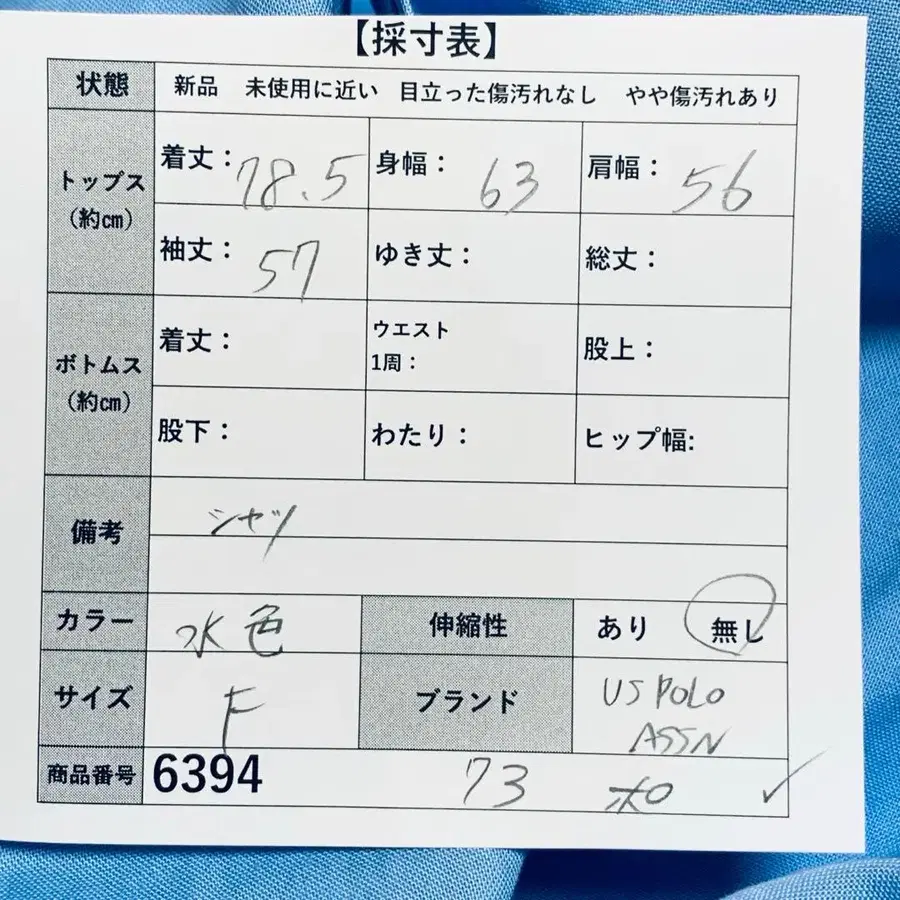 【採寸表】
状態 新品 未使用に近い 目立った傷汚れなし やや傷汚れあり
トップス (約㎝) 着丈: 78.5 身幅: 63 肩幅: 56
袖丈: 57 ゆき丈: 総丈:
ボトムス (約㎝) 着丈: ウエスト 1周: 股上:
股下: わたり: ヒップ幅:
備考 シャツ
カラー 水色 伸縮性 あり 無し
サイズ F ブランド US POLO
ASSN
商品番号 6394 73 ポロ ✓